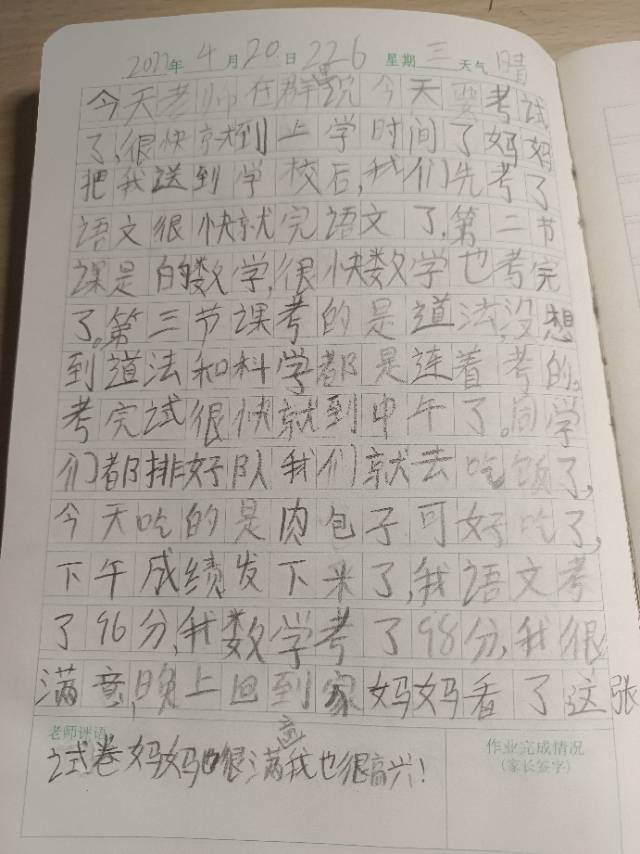 2022年4月20日226 星期三天气晴
今天老师在群里说今天要考试
了,很快就到上学时间了妈妈
把我送到学校后,我们先考了
语文很快就完语文了,第二节
课是的数学,很快数学也考完
了。第三节课考的是道法,没想
到道法和科学都是连着考的。
考完试很快就到中午了。同学
们都排好队我们就去吃饭了,
今天吃的是肉包子可好吃了,
下午成绩发下来了,我语文考
了96分,我数学考了98分,我很
满意,晚上回到家妈妈看了这张
老师评语
试卷妈妈也很满意我也很高兴!
作业完成情况
(家长签字)